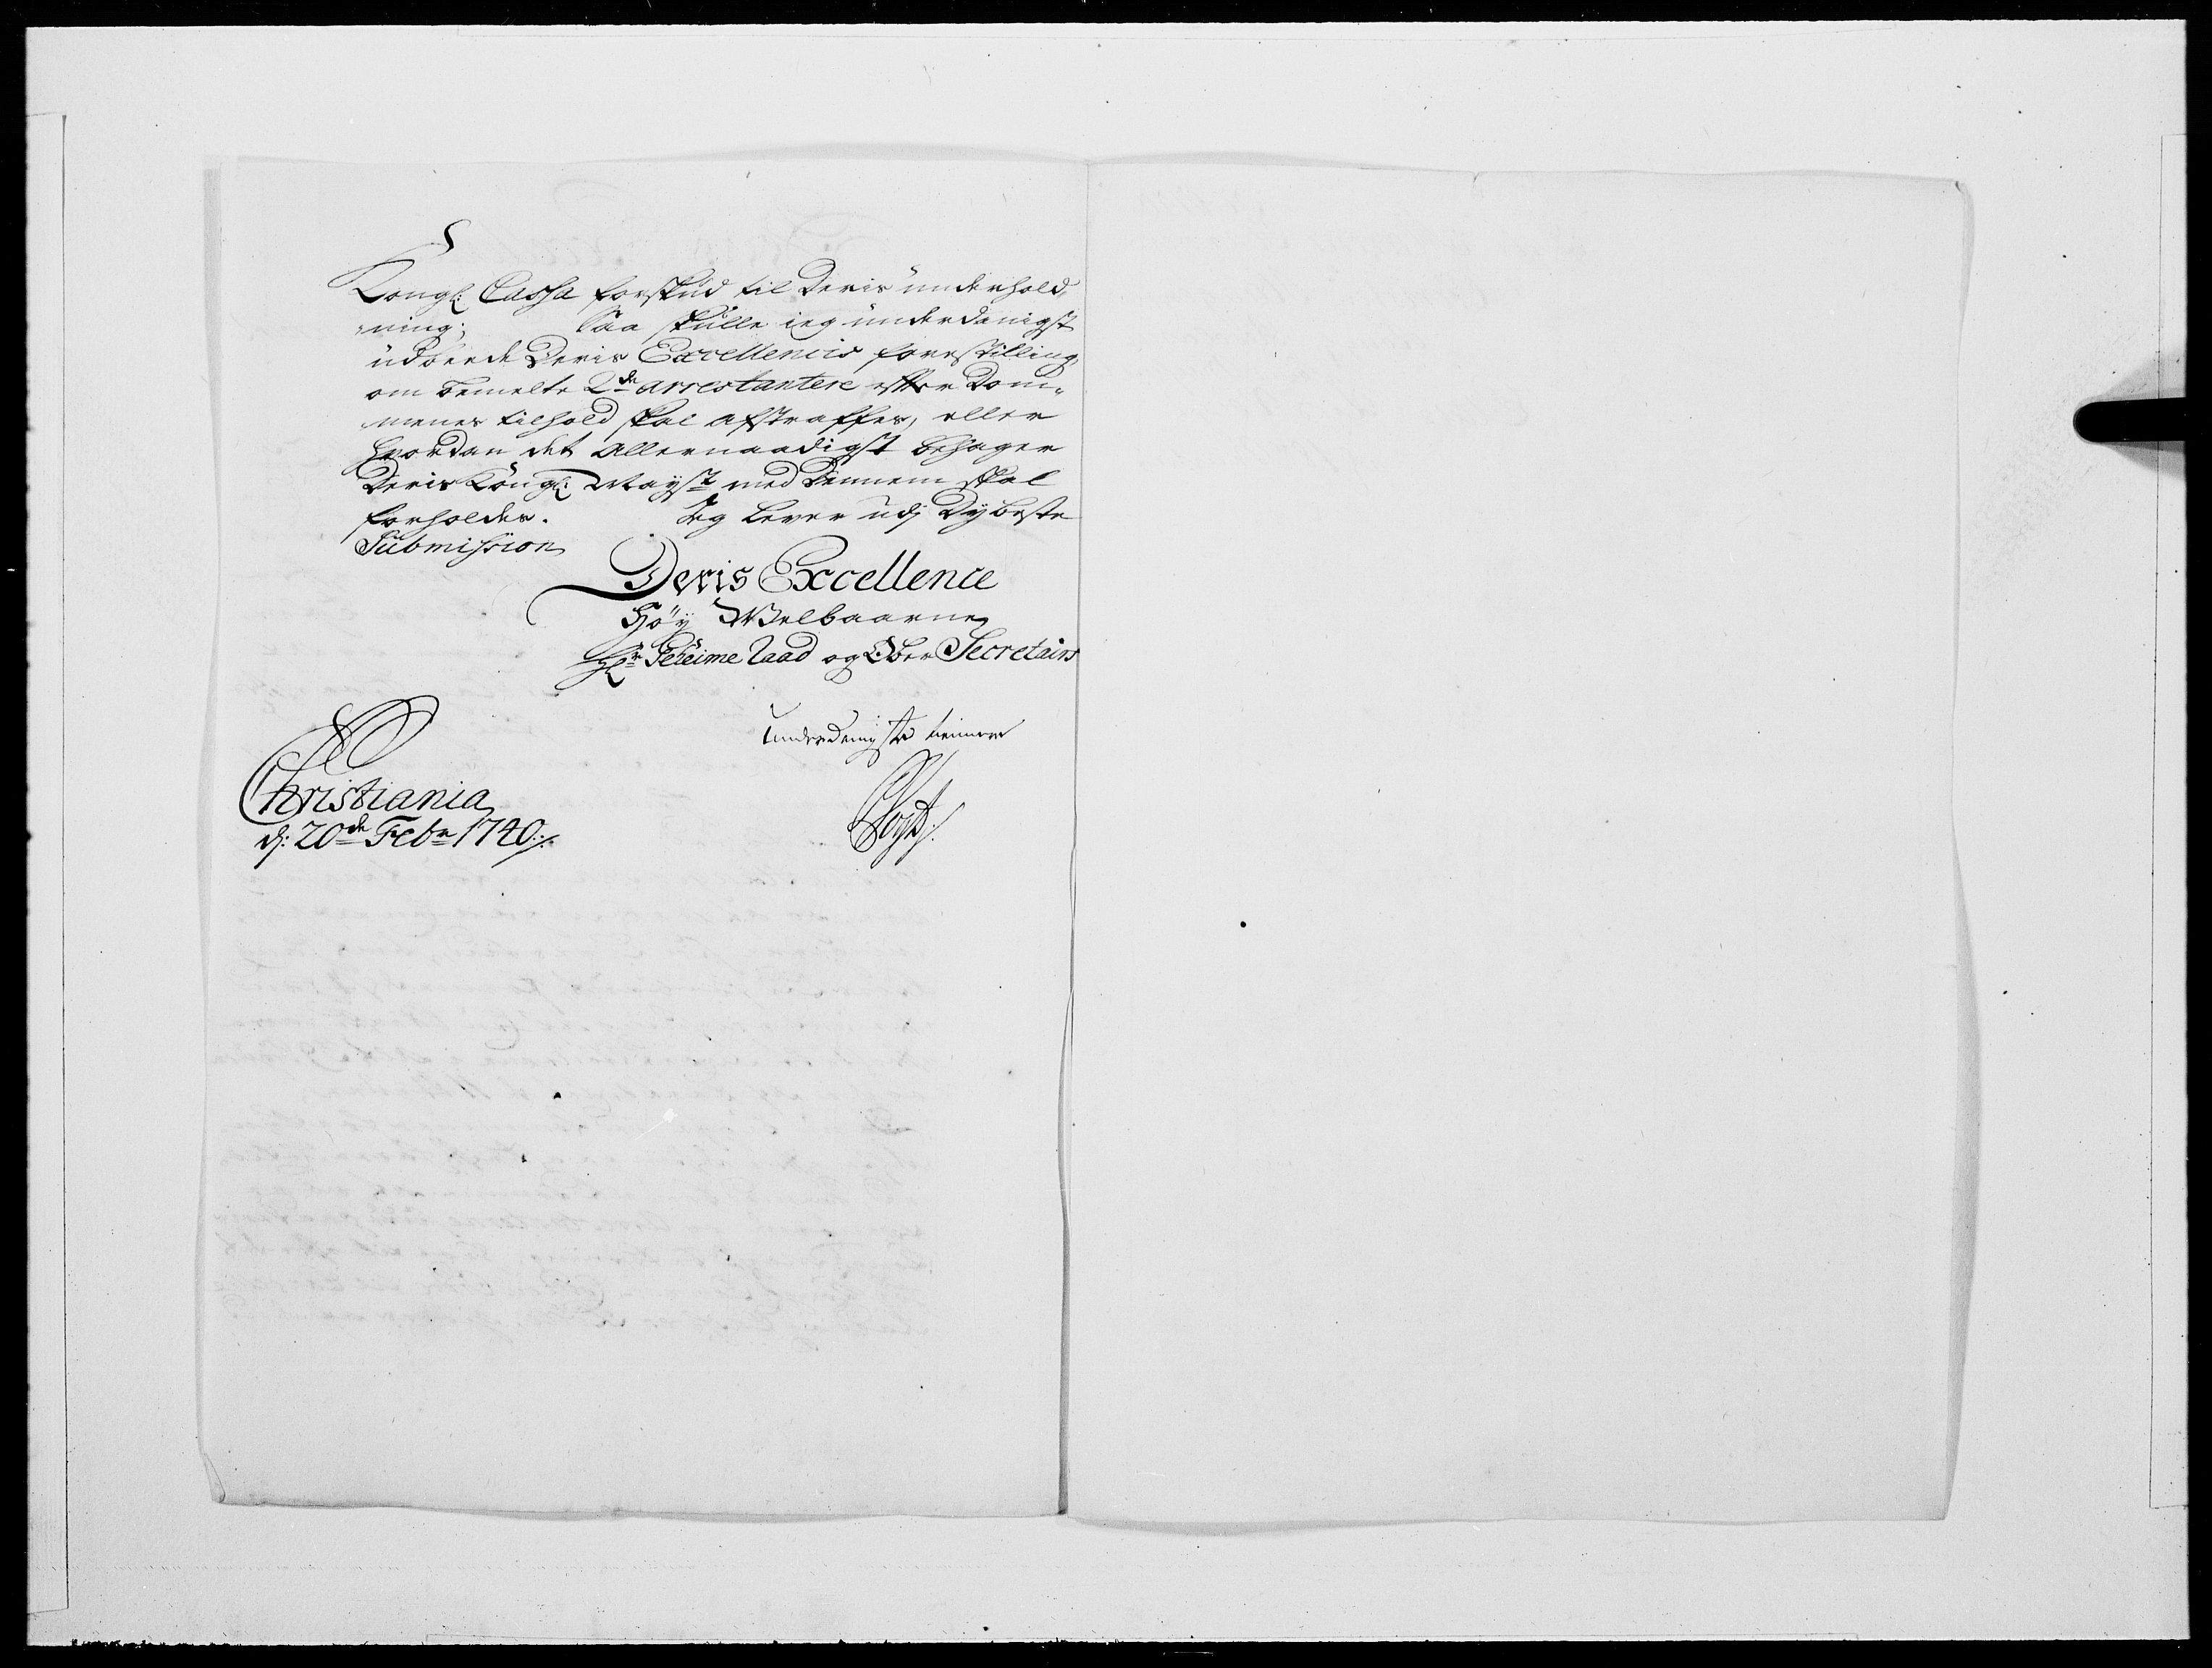 Kongl: Cassa forskud til deris underhold,
ning; Saa skulle ieg underdanigst
udbeede Deris Excellencis forestilling,
om bemelte 2de arrestantere efter Dom,
menes tilhold skal afstraffes, eller
hvordan det Allernaadigst behager
Deris Kongl: Mayst med dennem skal
forholdes. Jeg lever udj Dybeste
Submission
Deris Excellence
Höy Welbaarne
Hr Geheime Raad og Ober Secretairs
Underdanigste tienner
Christiania
d: 20de Febr 1740